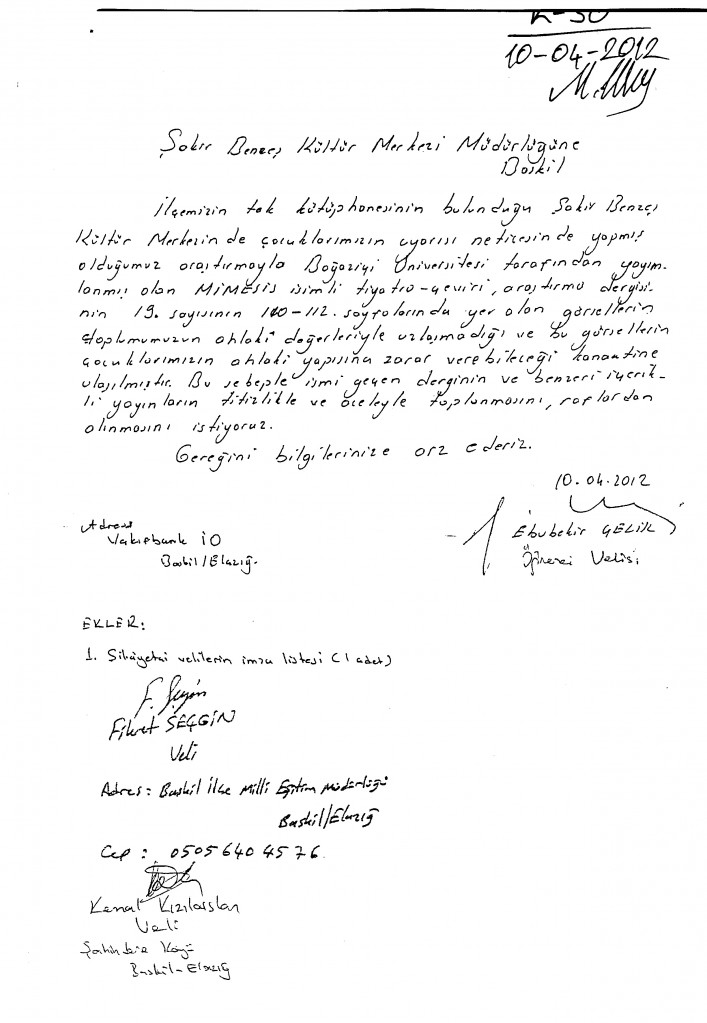 K-30
10-04-2012
Şakir Benzeş Kültür Merkezi Müdürlüğüne
Baskil
İlçemizin tek kütüphanesinin bulunduğu Şakir Benzeş
Kültür Merkezin de çocuklarımızın uyarısı netizesinde yapmış
olduğumuz araştırmayla Boğaziyi Üniversitesi tarafından yayım-
lanmış olan MİMESİS isimli tiyatro-çeviri, araştırma dergisi-
nin 19. sayısının 110-112. sayfalarında yer alan görsellerin
toplumumuzun ahlaki değerleriyle uzlaşmadığı ve bu görsellerin
çocuklarımızın ahlaki yapısına zarar verebileceği kanaatine
ulaşılmıştır. Bu sebeple ismi geçen derginin ve benzeri içerik-
li yayınların titizlikle ve aceleyle toplanmasını, raflardan
alınmasını istiyoruz.
Gereğini bilgilerinize arz ederiz.
10.04.2012
Ebubekir ÇELİK
Öğrenci Velisi
Adres
Vakıfbank İO
Baskil/Elazığ.
EKLER:
1. Şikayetçi velilerin imza listesi (1 adet)
F. Seçgin
Fikret SEÇGİN
Veli
Adres: Baskil İlçe Milli Eğitim Müdürlüğü
Baskil/Elazığ
Cep : 0505 640 4576
Kemal Kızılarslan
Veli
Köyü
Baskil-Elazığ